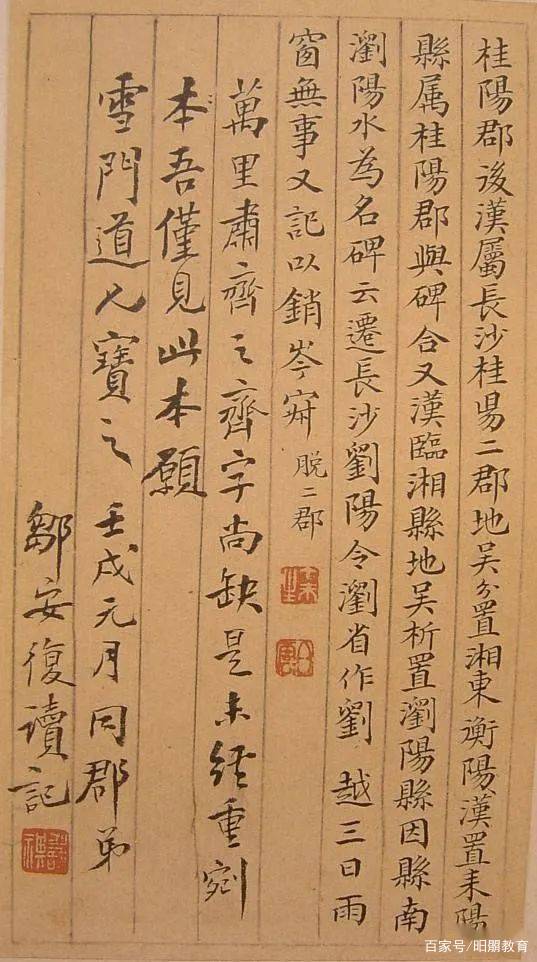 桂陽郡後漢屬長沙桂陽二郡地吳分置湘東衡陽漢置耒陽
縣属桂陽郡與碑合又漢臨湘縣地吳析置瀏陽縣因縣南
瀏陽水為名碑云遷長沙劉陽令瀏省作劉 越三日雨
窗無事又記以銷岑寂 脱二郡
萬里肅齊之齊字尚缺是未經重剜
本吾僅見此本願
雪門道兄寶之 壬戌元月同郡弟
鄒安復讀記
百家号/昭朤教育